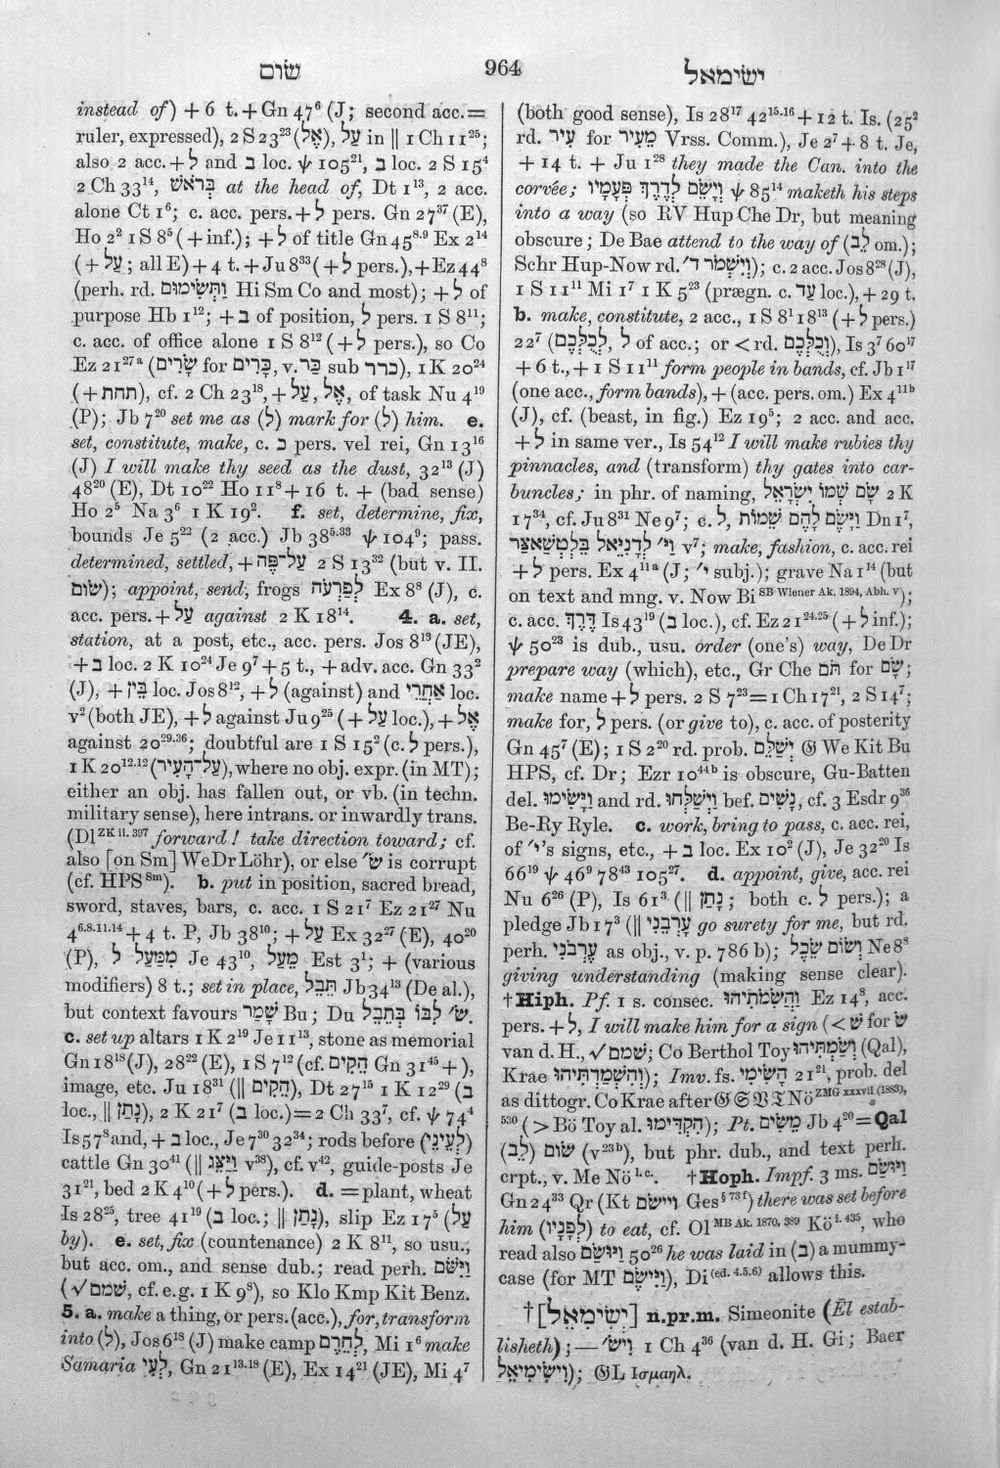 שׂום
964
ישׂימאל
instead of) + 6 t. + Gn 47⁶ (J; second acc. =
ruler, expressed), 2 S 23²³ (אֶל), עַל in ‖ 1 Ch 11²⁵;
also 2 acc. + לְ and בְּ loc. ψ 105²¹, בְּ loc. 2 S 15⁴
2 Ch 33¹⁴, בְּראֹשׁ at the head of, Dt 1¹³, 2 acc.
alone Ct 1⁶; c. acc. pers. + לְ pers. Gn 27³⁷ (E),
Ho 2² 1 S 8⁵ (+ inf.); + לְ of title Gn 45⁸·⁹ Ex 2¹⁴
(+ עַל; all E) + 4 t. + Ju 8³³ (+ לְ pers.), + Ez 44⁸
(perh. rd. וַתְּשִׂימוּם Hi Sm Co and most); + לְ of
purpose Hb 1¹²; + בְּ of position, לְ pers. 1 S 8¹¹;
c. acc. of office alone 1 S 8¹² (+ לְ pers.), so Co
Ez 21²⁷ᵃ (שָׂרִים for כָּרִים, v. כַּר sub כרר), 1 K 20²⁴
(+ תחת), cf. 2 Ch 23¹⁸, + עַל, אֶל, of task Nu 4¹⁹
(P); Jb 7²⁰ set me as (לְ) mark for (לְ) him. e.
set, constitute, make, c. כְּ pers. vel rei, Gn 13¹⁶
(J) I will make thy seed as the dust, 32¹³ (J)
48²⁰ (E), Dt 10²² Ho 11⁸ + 16 t. + (bad sense)
Ho 2⁵ Na 3⁶ 1 K 19². f. set, determine, fix,
bounds Je 5²² (2 acc.) Jb 38⁵·³³ ψ 104⁹; pass.
determined, settled, + עַל־פֶּה 2 S 13³² (but v. II.
שׂום); appoint, send, frogs לְפַרְעֹה Ex 8⁸ (J), c.
acc. pers. + עַל against 2 K 18¹⁴. 4. a. set,
station, at a post, etc., acc. pers. Jos 8¹³ (JE),
+ בְּ loc. 2 K 10²⁴ Je 9⁷ + 5 t., + adv. acc. Gn 33²
(J), + בֵּין loc. Jos 8¹², + לְ (against) and אַחֲרֵי loc.
v² (both JE), + לְ against Ju 9²⁵ (+ עַל loc.), + אֶל
against 20²⁹·³⁶; doubtful are 1 S 15² (c. לְ pers.),
1 K 20¹²·¹² (עַל־הָעִיר), where no obj. expr. (in MT);
either an obj. has fallen out, or vb. (in techn.
military sense), here intrans. or inwardly trans.
(Dl ZK ii. 397 forward! take direction toward; cf.
also [on Sm] We Dr Löhr), or else שׂ׳ is corrupt
(cf. HPS Sm). b. put in position, sacred bread,
sword, staves, bars, c. acc. 1 S 21⁷ Ez 21²⁷ Nu
4⁶·⁸·¹¹·¹⁴ + 4 t. P, Jb 38¹⁰; + עַל Ex 32²⁷ (E), 40²⁰
(P), מִמַּעַל לְ Je 43¹⁰, מֵעַל Est 3¹; + (various
modifiers) 8 t.; set in place, תֵּבֵל Jb 34¹³ (De al.),
but context favours שָׁמַר Bu; Du שׂ׳ לִבּוֹ בְּתֵבֵל.
c. set up altars 1 K 2¹⁹ Je 11¹³, stone as memorial
Gn 18¹⁸ (J), 28²² (E), 1 S 7¹² (cf. הֵקִים Gn 31⁴⁵ +),
image, etc. Ju 18³¹ (‖ הֵקִים), Dt 27¹⁵ 1 K 12²⁹ (בְּ
loc., ‖ נָתַן), 2 K 21⁷ (בְּ loc.) = 2 Ch 33⁷, cf. ψ 74⁴
Is 57⁸ and, + בְּ loc., Je 7³⁰ 32³⁴; rods before (לְעֵינֵי)
cattle Gn 30⁴¹ (‖ וַיַּצֵּג v³⁸), cf. v⁴², guide-posts Je
31²¹, bed 2 K 4¹⁰ (+ לְ pers.). d. = plant, wheat
Is 28²⁵, tree 41¹⁹ (בְּ loc.; ‖ נָתַן), slip Ez 17⁵ (עַל
by). e. set, fix (countenance) 2 K 8¹¹, so usu.,
but acc. om., and sense dub.; read perh. וַיִּשֹּׁם
(√ שׁמם, cf. e.g. 1 K 9⁸), so Klo Kmp Kit Benz.
5. a. make a thing, or pers. (acc.), for, transform
into (לְ), Jos 6¹⁸ (J) make camp לְחֵרֶם, Mi 1⁶ make
Samaria לְעִי, Gn 21¹³·¹⁸ (E), Ex 14²¹ (JE), Mi 4⁷
(both good sense), Is 28¹⁷ 42¹⁵·¹⁶ + 12 t. Is. (25²
rd. עִיר for מֵעִיר Vrss. Comm.), Je 2⁷ + 8 t. Je,
+ 14 t. + Ju 1²⁸ they made the Can. into the
corvée; וְיָשֵׂם לְדֶרֶךְ פְּעָמָיו ψ 85¹⁴ maketh his steps
into a way (so RV Hup Che Dr, but meaning
obscure; De Bae attend to the way of (לֵב om.);
Schr Hup-Now rd. וְיִשְׁמֹר ד׳); c. 2 acc. Jos 8²⁸ (J),
1 S 11¹¹ Mi 1⁷ 1 K 5²³ (prægn. c. עַד loc.), + 29 t.
b. make, constitute, 2 acc., 1 S 8¹ 18¹³ (+ לְ pers.)
22⁷ (לְכֻלְּכֶם, לְ of acc.; or < rd. וְכֻלְּכֶם), Is 3⁷ 60¹⁷
+ 6 t., + 1 S 11¹¹ form people in bands, cf. Jb 1¹⁷
(one acc., form bands), + (acc. pers. om.) Ex 4¹¹ᵇ
(J), cf. (beast, in fig.) Ez 19⁵; 2 acc. and acc.
+ לְ in same ver., Is 54¹² I will make rubies thy
pinnacles, and (transform) thy gates into car-
buncles; in phr. of naming, שָׂם שְׁמוֹ יִשְׂרָאֵל 2 K
17³⁴, cf. Ju 8³¹ Ne 9⁷; c. לְ, וַיָּשֶׂם לָהֶם שֵׁמוֹת Dn 1⁷,
וַי׳ לְדָנִיֵּאל בֵּלְטְשַׁאצַּר v⁷; make, fashion, c. acc. rei
+ לְ pers. Ex 4¹¹ᵃ (J; י׳ subj.); grave Na 1¹⁴ (but
on text and mng. v. Now Bi SB Wiener Ak. 1894, Abh. v);
c. acc. דֶּרֶךְ Is 43¹⁹ (בְּ loc.), cf. Ez 21²⁴·²⁵ (+ לְ inf.);
ψ 50²³ is dub., usu. order (one's) way, De Dr
prepare way (which), etc., Gr Che תֹּם for שָׂם;
make name + לְ pers. 2 S 7²³ = 1 Ch 17²¹, 2 S 14⁷;
make for, לְ pers. (or give to), c. acc. of posterity
Gn 45⁷ (E); 1 S 2²⁰ rd. prob. יְשַׁלֵּם 𝔊 We Kit Bu
HPS, cf. Dr; Ezr 10⁴⁴ᵇ is obscure, Gu-Batten
del. וַיָּשִׂימוּ and rd. וַיְשַׁלְּחוּ bef. נָשִׁים, cf. 3 Esdr 9³⁶
Be-Ry Ryle. c. work, bring to pass, c. acc. rei,
of י׳'s signs, etc., + בְּ loc. Ex 10² (J), Je 32²⁰ Is
66¹⁹ ψ 46⁹ 78⁴³ 105²⁷. d. appoint, give, acc. rei
Nu 6²⁶ (P), Is 61³ (‖ נָתַן; both c. לְ pers.); a
pledge Jb 17³ (‖ עָרְבֵנִי go surety for me, but rd.
perh. עֶרְבֹנִי as obj., v. p. 786 b); וְשׂוֹם שֶׂכֶל Ne 8⁸
giving understanding (making sense clear).
† Hiph. Pf. 1 s. consec. וַהֲשִׂמֹתִיהוּ Ez 14⁸, acc.
pers. + לְ, I will make him for a sign (< שׂ for שׁ
van d. H., √ שׁמם; Co Berthol Toy וְשַׂמְתִּיהוּ (Qal),
Krae וְהִשְׁמַדְתִּיהוּ); Imv. fs. הָשִׂימִי 21²¹, prob. del
as dittogr. Co Krae after 𝔊 𝔖 𝔙 𝔗 Nö ZMG xxxvii (1883),
530 (> Bö Toy al. הַקְדִּימִי); Pt. מֵשִׂים Jb 4²⁰ = Qal
שׂוּם (לֵב) (v²³ᵇ), but phr. dub., and text perh.
crpt., v. Me Nö l.c. † Hoph. Impf. 3 ms. וַיּוּשַׂם
Gn 24³³ Qr (Kt ויישׂם Ges § 73 f) there was set before
him (לְפָנָיו) to eat, cf. Ol MB Ak. 1870, 389 Kö i. 435, who
read also וַיּוּשַׂם 50²⁶ he was laid in (בְּ) a mummy-
case (for MT וַיִּישֶׂם), Di (ed. 4.5.6) allows this.
† [יְשִׂימִאֵל] n.pr.m. Simeonite (Ēl estab-
lisheth); — וִישׂ׳ 1 Ch 4³⁶ (van d. H. Gi; Baer
וִישִׂימִיאֵל); 𝔊L Ισμαηλ.